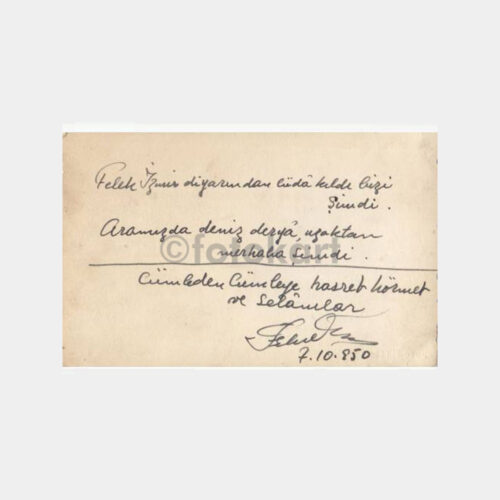 Felek İzmir diyarından cüdâ kıldı bizi
Şimdi.
Aramızda deniz deryâ, uzaktan
merhaba şimdi.
©fotokart
Cümleden Cümleye hasret hörmet
ve Selâmlar
7.10.950